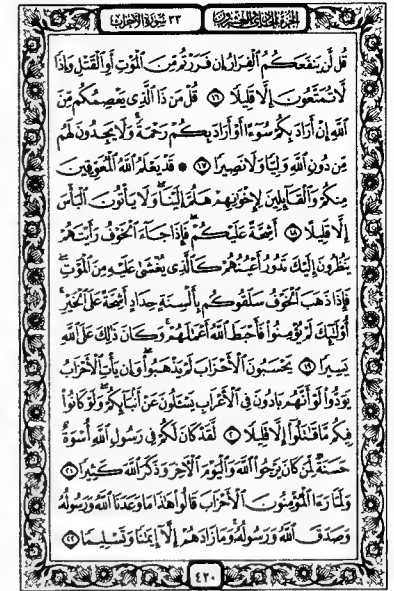 الجزء الحادي والعشرون
٣٣ سورة الأحزاب
قُل لَّن يَنفَعَكُمُ ٱلْفِرَارُ إِن فَرَرْتُم مِّنَ ٱلْمَوْتِ أَوِ ٱلْقَتْلِ وَإِذًا
لَّا تُمَتَّعُونَ إِلَّا قَلِيلًا ١٦ قُلْ مَن ذَا ٱلَّذِى يَعْصِمُكُم مِّنَ
ٱللَّهِ إِنْ أَرَادَ بِكُمْ سُوٓءًا أَوْ أَرَادَ بِكُمْ رَحْمَةً ۚ وَلَا يَجِدُونَ لَهُم
مِّن دُونِ ٱللَّهِ وَلِيًّا وَلَا نَصِيرًا ١٧ ۞ قَدْ يَعْلَمُ ٱللَّهُ ٱلْمُعَوِّقِينَ
مِنكُمْ وَٱلْقَآئِلِينَ لِإِخْوَٰنِهِمْ هَلُمَّ إِلَيْنَا ۖ وَلَا يَأْتُونَ ٱلْبَأْسَ
إِلَّا قَلِيلًا ١٨ أَشِحَّةً عَلَيْكُمْ ۖ فَإِذَا جَآءَ ٱلْخَوْفُ رَأَيْتَهُمْ
يَنظُرُونَ إِلَيْكَ تَدُورُ أَعْيُنُهُمْ كَٱلَّذِى يُغْشَىٰ عَلَيْهِ مِنَ ٱلْمَوْتِ ۖ
فَإِذَا ذَهَبَ ٱلْخَوْفُ سَلَقُوكُم بِأَلْسِنَةٍ حِدَادٍ أَشِحَّةً عَلَى ٱلْخَيْرِ ۚ
أُو۟لَٰٓئِكَ لَمْ يُؤْمِنُوا۟ فَأَحْبَطَ ٱللَّهُ أَعْمَٰلَهُمْ ۚ وَكَانَ ذَٰلِكَ عَلَى ٱللَّهِ
يَسِيرًا ١٩ يَحْسَبُونَ ٱلْأَحْزَابَ لَمْ يَذْهَبُوا۟ ۖ وَإِن يَأْتِ ٱلْأَحْزَابُ
يَوَدُّوا۟ لَوْ أَنَّهُم بَادُونَ فِى ٱلْأَعْرَابِ يَسْـَٔلُونَ عَنْ أَنۢبَآئِكُمْ ۖ وَلَوْ كَانُوا۟
فِيكُم مَّا قَٰتَلُوٓا۟ إِلَّا قَلِيلًا ٢٠ لَّقَدْ كَانَ لَكُمْ فِى رَسُولِ ٱللَّهِ أُسْوَةٌ
حَسَنَةٌ لِّمَن كَانَ يَرْجُوا۟ ٱللَّهَ وَٱلْيَوْمَ ٱلْءَاخِرَ وَذَكَرَ ٱللَّهَ كَثِيرًا ٢١
وَلَمَّا رَءَا ٱلْمُؤْمِنُونَ ٱلْأَحْزَابَ قَالُوا۟ هَٰذَا مَا وَعَدَنَا ٱللَّهُ وَرَسُولُهُۥ
وَصَدَقَ ٱللَّهُ وَرَسُولُهُۥ ۚ وَمَا زَادَهُمْ إِلَّآ إِيمَٰنًا وَتَسْلِيمًا ٢٢
٤٢٠